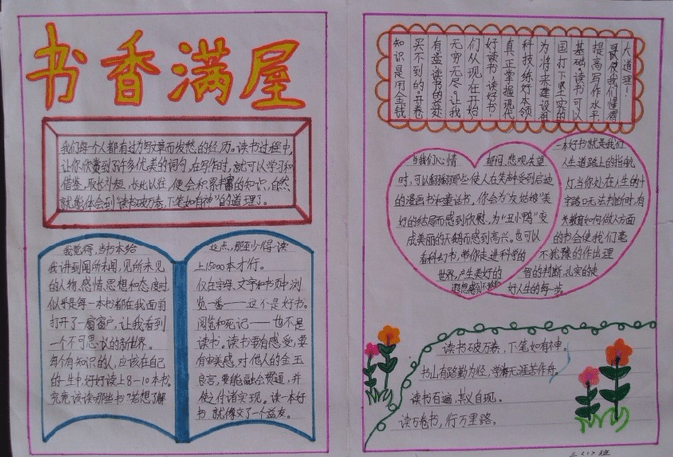 书香满屋
我们每个人都有过为写文章而发愁的经历。读书过程中,
让你欣赏到了许多优美的词句,在写作时,就可以学习和
借鉴,取长补短,长此以往,便会积累丰富的知识,自然
就能体会到"读书破万卷,下笔如有神"的道理了。
我觉得,当书本给
我讲到闻所未闻,见所未见
的人物、感情、思想和态度时
似乎是每一本书都在我面前
打开了一扇窗户,让我看到
一个不可思议的新世界。
每个有知识的人,应该在自己
的一生中,好好读上8-10本书,
究竟该读哪些书
这点,那至少得读
上15000本才行。
仅在字母、文字和书页中浏
览一番——这不是好书。
阅览和死记——也不是
读书。读书要有感受,要
有审美感,对他人的金玉
良言,要能融会贯通,并
使之付诸实现。读一本好
书,就像交了一个益友。
知识是用金钱
买不到的!开卷
有益,读书的益处
无穷无尽!让我
们从现在开始
好读书,读好书!
真正掌握现代
科技练好本领
为将来建设祖
国打下坚实的
基础读书可以
提高写作水平
使我们懂得
大道理!
当我们心情 郁闷,悲观失望
时,可以翻翻那些使人在笑声中受到启迪
的漫画书和童话书,你会为"灰姑娘"美
好的结局而感到欣慰,为"丑小鸭"变
成美丽的天鹅而感到高兴。也可以
看科幻书,带你走进科学的
世界,产生美好的
一本好书就是我们
人生道路上的指航
灯当你处在人生的十
字路口无法判断时,有
关教育如何做人方面
的书会使我们毫
不犹豫的作出理
智的判断,扎实的走
好人生的每一步。
读书破万卷,下笔如有神。
书山有路勤为径,学海无涯苦作舟。
读书百遍,其义自现。
读万卷书,行万里路。